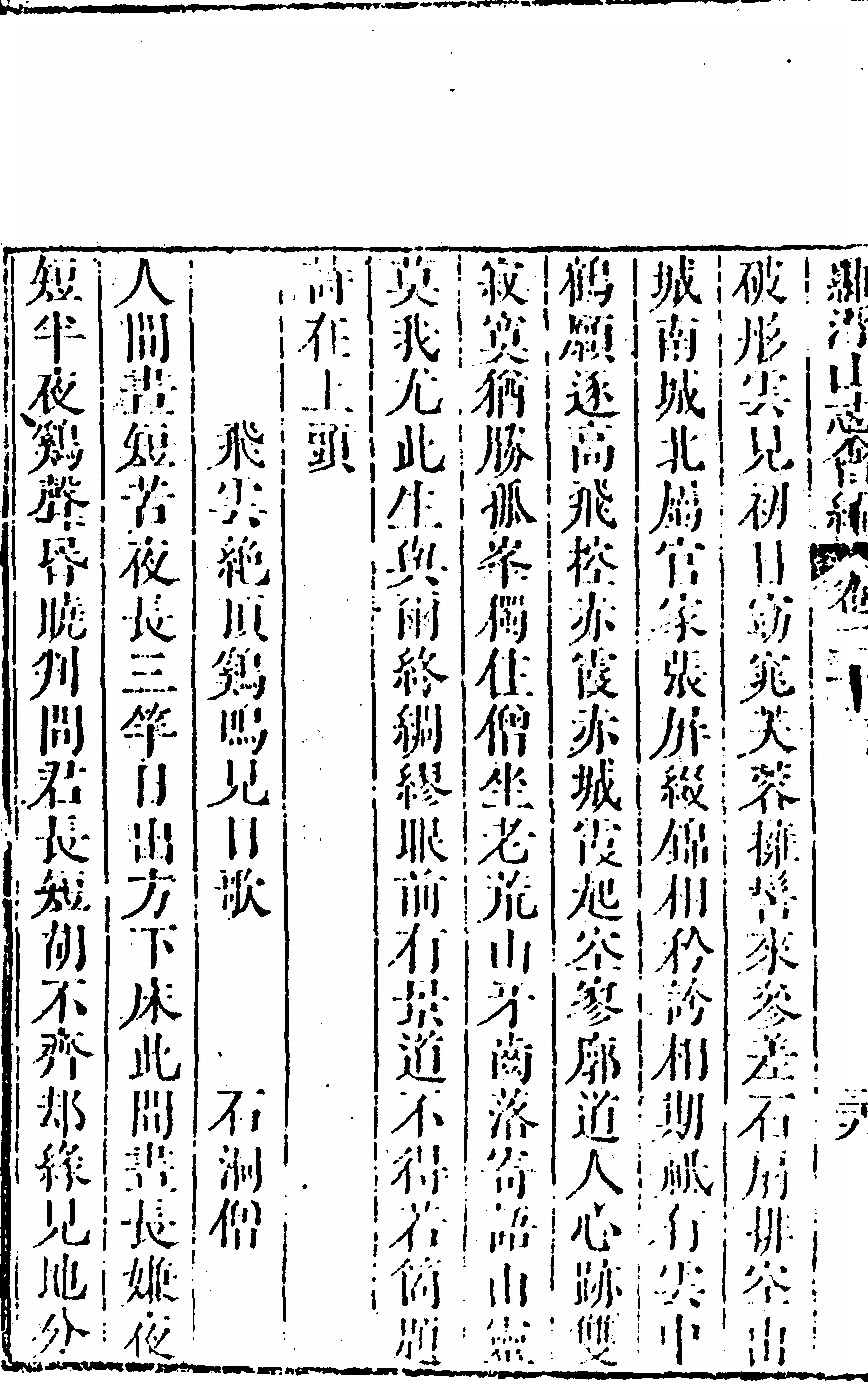 羅浮山志會編 卷二十
破彤雲見初日窈窕芙蓉擁髻來參差石扇排空出
城南城北屬官家張屏綴錦相矜誇相期祗有雲中
鶴願逐高飛控赤霞赤城霞起空寥廓道人心跡雙
寂寞猶勝孤峯獨住僧坐老荒山牙齒落寄語山靈
莫我尤此生與爾終綢繆眼前有景道不得若箇題
詩在上頭
飛雲絶頂鷄鳴見日歌 石洞僧
人間晝短苦夜長三竿日出方下床此間晝長嫌夜
短半夜鷄聲昏曉判問君長短胡不齊却緣見地分